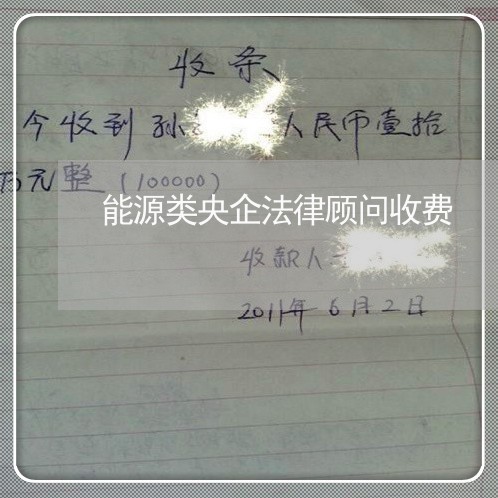 收条
今收到孙 人民币壹拾
万元整（100000）
能源类央企法律顾问收费
收款人
2011年6月2日